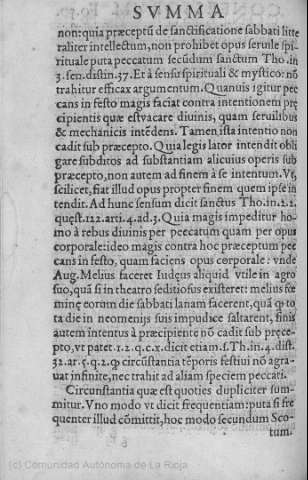 SVMMA
non: quia præceptũ de sanctificatione sabbati litte
raliter intellectum, non prohibet opus seruile spi
rituale puta peccatum secũdum sanctum Tho. in
3. sen. distin. 37. Et à sensu spirituali & mystico: nõ
trahitur efficax argumentum. Quanuis igitur pec
cans in festo magis faciat contra intentionem præ
cipientis quæ est vacare diuinis, quam seruilibus
& mechanicis intẽdens. Tamen, ista intentio non
cadit sub præcepto. Quia legis lator intendit obli
gare subditos ad substantiam alicuius operis sub
præcepto, non autem ad finem à se intentum. Vt,
scilicet, fiat illud opus propter finem quem ipse in
tendit. Ad hunc sensum dicit sanctus Tho. in. 2. 2.
quæst. 122. arti. 4. ad. 3. Quia magis impeditur ho
mo à rebus diuinis per peccatum quam per opus
corporale: ideo magis contra hoc præceptum pec
cans in festo, quam faciens opus corporale: vnde
Aug. Melius faceret Iudęus aliquid vtile in agro
suo, quã si in theatro seditiosus existeret: melius fœ
minę eorum die sabbati lanam facerent, quã ꝙ to
ta die in neomenijs suis impudice saltarent, finis
autem intentus à præcipiente nõ cadit sub præce-
pto, vt patet. 1. 2. q. c. x. dicit etiam. S. Th. in. 4. dist.
32. ar. 5. q. 2. ꝙ circũstantia tẽporis festiui nõ agra-
uat infinite, nec trahit ad aliam speciem peccati.
Circunstantia quæ est quoties dupliciter sum-
mitur. Vno modo vt dicit frequentiam: puta si fre
quenter illud cõmittit, hoc modo secundum Sco-
tum.
(c) Comunidad Autónoma de La Rioja